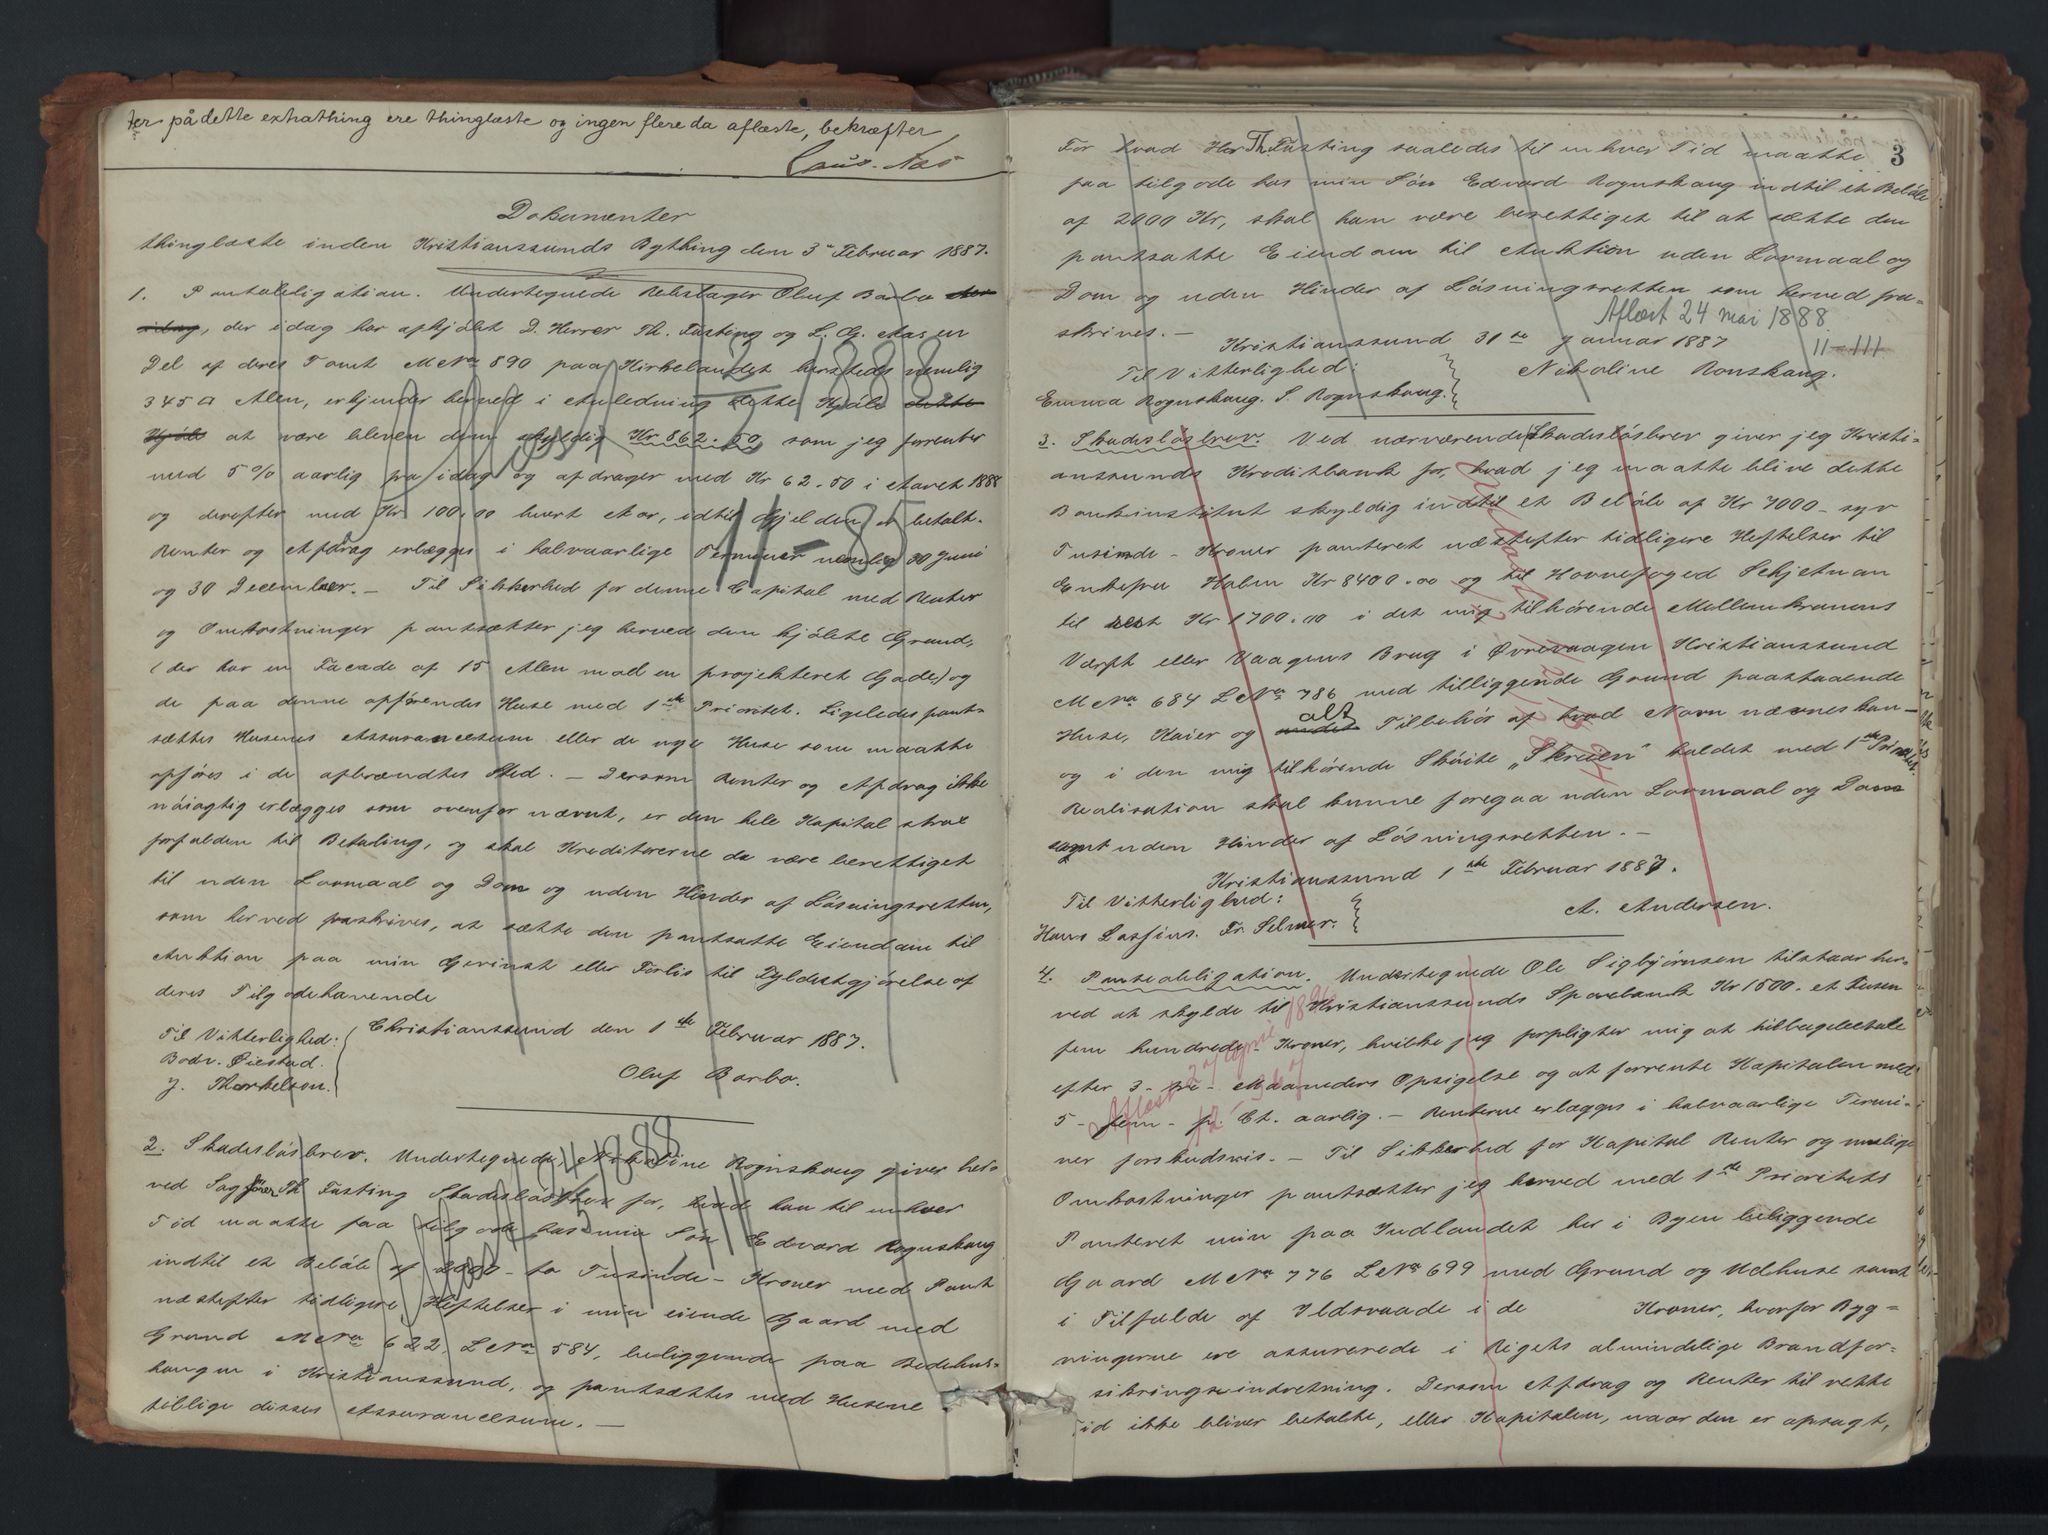 ter på dette extrathing ere thinglæste og ingen flere da aflæste, bekræfter
Dokumenter
thinglæste inden Kristianssunds Bything den 3die Februar 1887.
1. Pantobligation. Undertegnede Rebslager Oluf Barbo
idag, der idag har afkjøbt D. Herrer Th. Fasting og L. G. Aas en
Del af deres Tomt M No 890 paa Kirkelandet hersteds nemlig
345 □ Alen, erkjender herved i Anledning dette Kjøb dette
Kjøb at være bleven dem skyldig Kr 862.50 som jeg forrenter
med 5 % aarlig fra idag og afdrager med Kr 62.50 i Aaret 1888
og derefter med Kr 100.00 hvert Aar, idtil Gjelden er betalt.
Renter og Afdrag erlægges i halvaarlige Terminer nemlig 30 Juni
og 30 December. – Til Sikkerhed for denne Capital med Renter
og Omkostninger pantsætter jeg herved den kjøbte Grund,
(der har en Facade af 15 Alen mod en projekteret Gade) og
de paa denne opførendes Huse med 1ste Prioritet. Ligeledes pant-
sættes Husenes Assurancesum eller de nye Huse som maatte
opføres i de afbrændtes Sted. – Dersom Renter og Afdrag ikke
nøiagtig erlægges som ovenfor nævnt, er den hele Kapital strax
forfalden til Betaling, og skal Kreditorerne da være berettiget
til uden Lovmaal og Dom og uden Hinder af Løsningsretten,
som herved fraskrives, at sætte den pantsatte Eiendom til
Auktion paa min Gevinst eller Forlis til Fyldestgjørelse af
deres Tilgodehavende
Christianssund den 1ste Februar 1887.
Til Vitterlighed:
Bodv. Øiestad.
J. Thorkelson.
Oluf Barbo.
Aflæst 1888
11–85
2. Skadesløsbrev. Undertegnede Nikoline Rognskaug giver her-
ved Sagfører Th Fasting Skadesløsbrev for, hvad han til enhver
Tid maatte faa tilgode hos min Søn Edvard Rognskaug
indtil et Beløb af 2000 – to Tusinde – Kroner med Pant
næstefter tidligere Heftelser i min eiende Gaard med
Grund M No 622 L No 584, beliggende paa Bedehus-
haugen i Kristianssund, og pantsættes med Husene
tillige disses Assurancesum. –
3
For hvad Hr Th. Fasting saaledes til enhver Tid maatte
faa tilgode hos min Søn Edvard Rognskaug indtil et Beløb
af 2000 Kr, skal han være berettiget til at sætte den
pantsatte Eiendom til Auktion uden Lovmaal og
Dom og uden Hinder af Løsningsretten som herved fra-
skrives. –
Aflæst 24 mai 1888
II–111
Kristianssund 31te Januar 1887
Til Vitterlighed:
Nikoline Ronskaug.
Emma Rognskaug. S. Rognskaug.
3. Skadesløsbrev. Ved nærværende Skadesløsbrev giver jeg Kristi-
anssunds Kreditbank for, hvad jeg maatte blive dette
Bankinstitut skyldig indtil et Beløb af Kr 7000 – syv
Tusinde – Kroner panteret næstefter tidligere Heftelser til
Enkefru Holm Kr 8400.00 og til Havnefoged Schjetnan
til rest Kr 1700.00 i det mig tilhørende Mellemkranens
Værft eller Vaagens Brug i Øvrevaagen Kristianssund
M No 684 L No 786 med tilliggende Grund paastaaende
Huse, Kaier og andet alt Tilbehør af hvad Navn nævnes kan –
og i den mig tilhørende Skøite „Skreien" kaldet med 1ste Prioritet.
Realisation skal kunne foregaa uden Lovmaal og Dom
samt uden Hinder af Løsningsretten. –
Kristianssund 1ste Februar 1887.
Til Vitterlighed:
A. Andersen.
Hans Lossius. Fr. Selmer.
4. Panteobligation. Undertegnede Ole Sigbjørnsen tilstaar her-
ved at skylde til Kristianssunds Sparebank Kr 1500. et Tusen
fem hundrede Kroner, hvilke jeg forpligter mig at tilbagebetale
efter 3 – tre – Maaneders Opsigelse og at forrente Kapitalen med
5 – fem – pr. Ct. aarlig. – Renterne erlægges i halvaarlige Termi-
ner forskudsvis. – Til Sikkerhed for Kapital Renter og mulige
Omkostninger pantsætter jeg herved med 1ste Prioritets
Panteret min paa Indlandet her i Byen beliggende
Gaard M No 776 L No 699 med Grund og Udhuse samt
i Tilfælde af Ildsvaade i de Kroner, hvorfor Byg-
ningerne ere assurerede i Rigets almindelige Brandfor-
sikringsindretning. Dersom Afdrag og Renter til rette
Tid ikke bliver betalte, eller Kapitalen, naar den er opsagt,